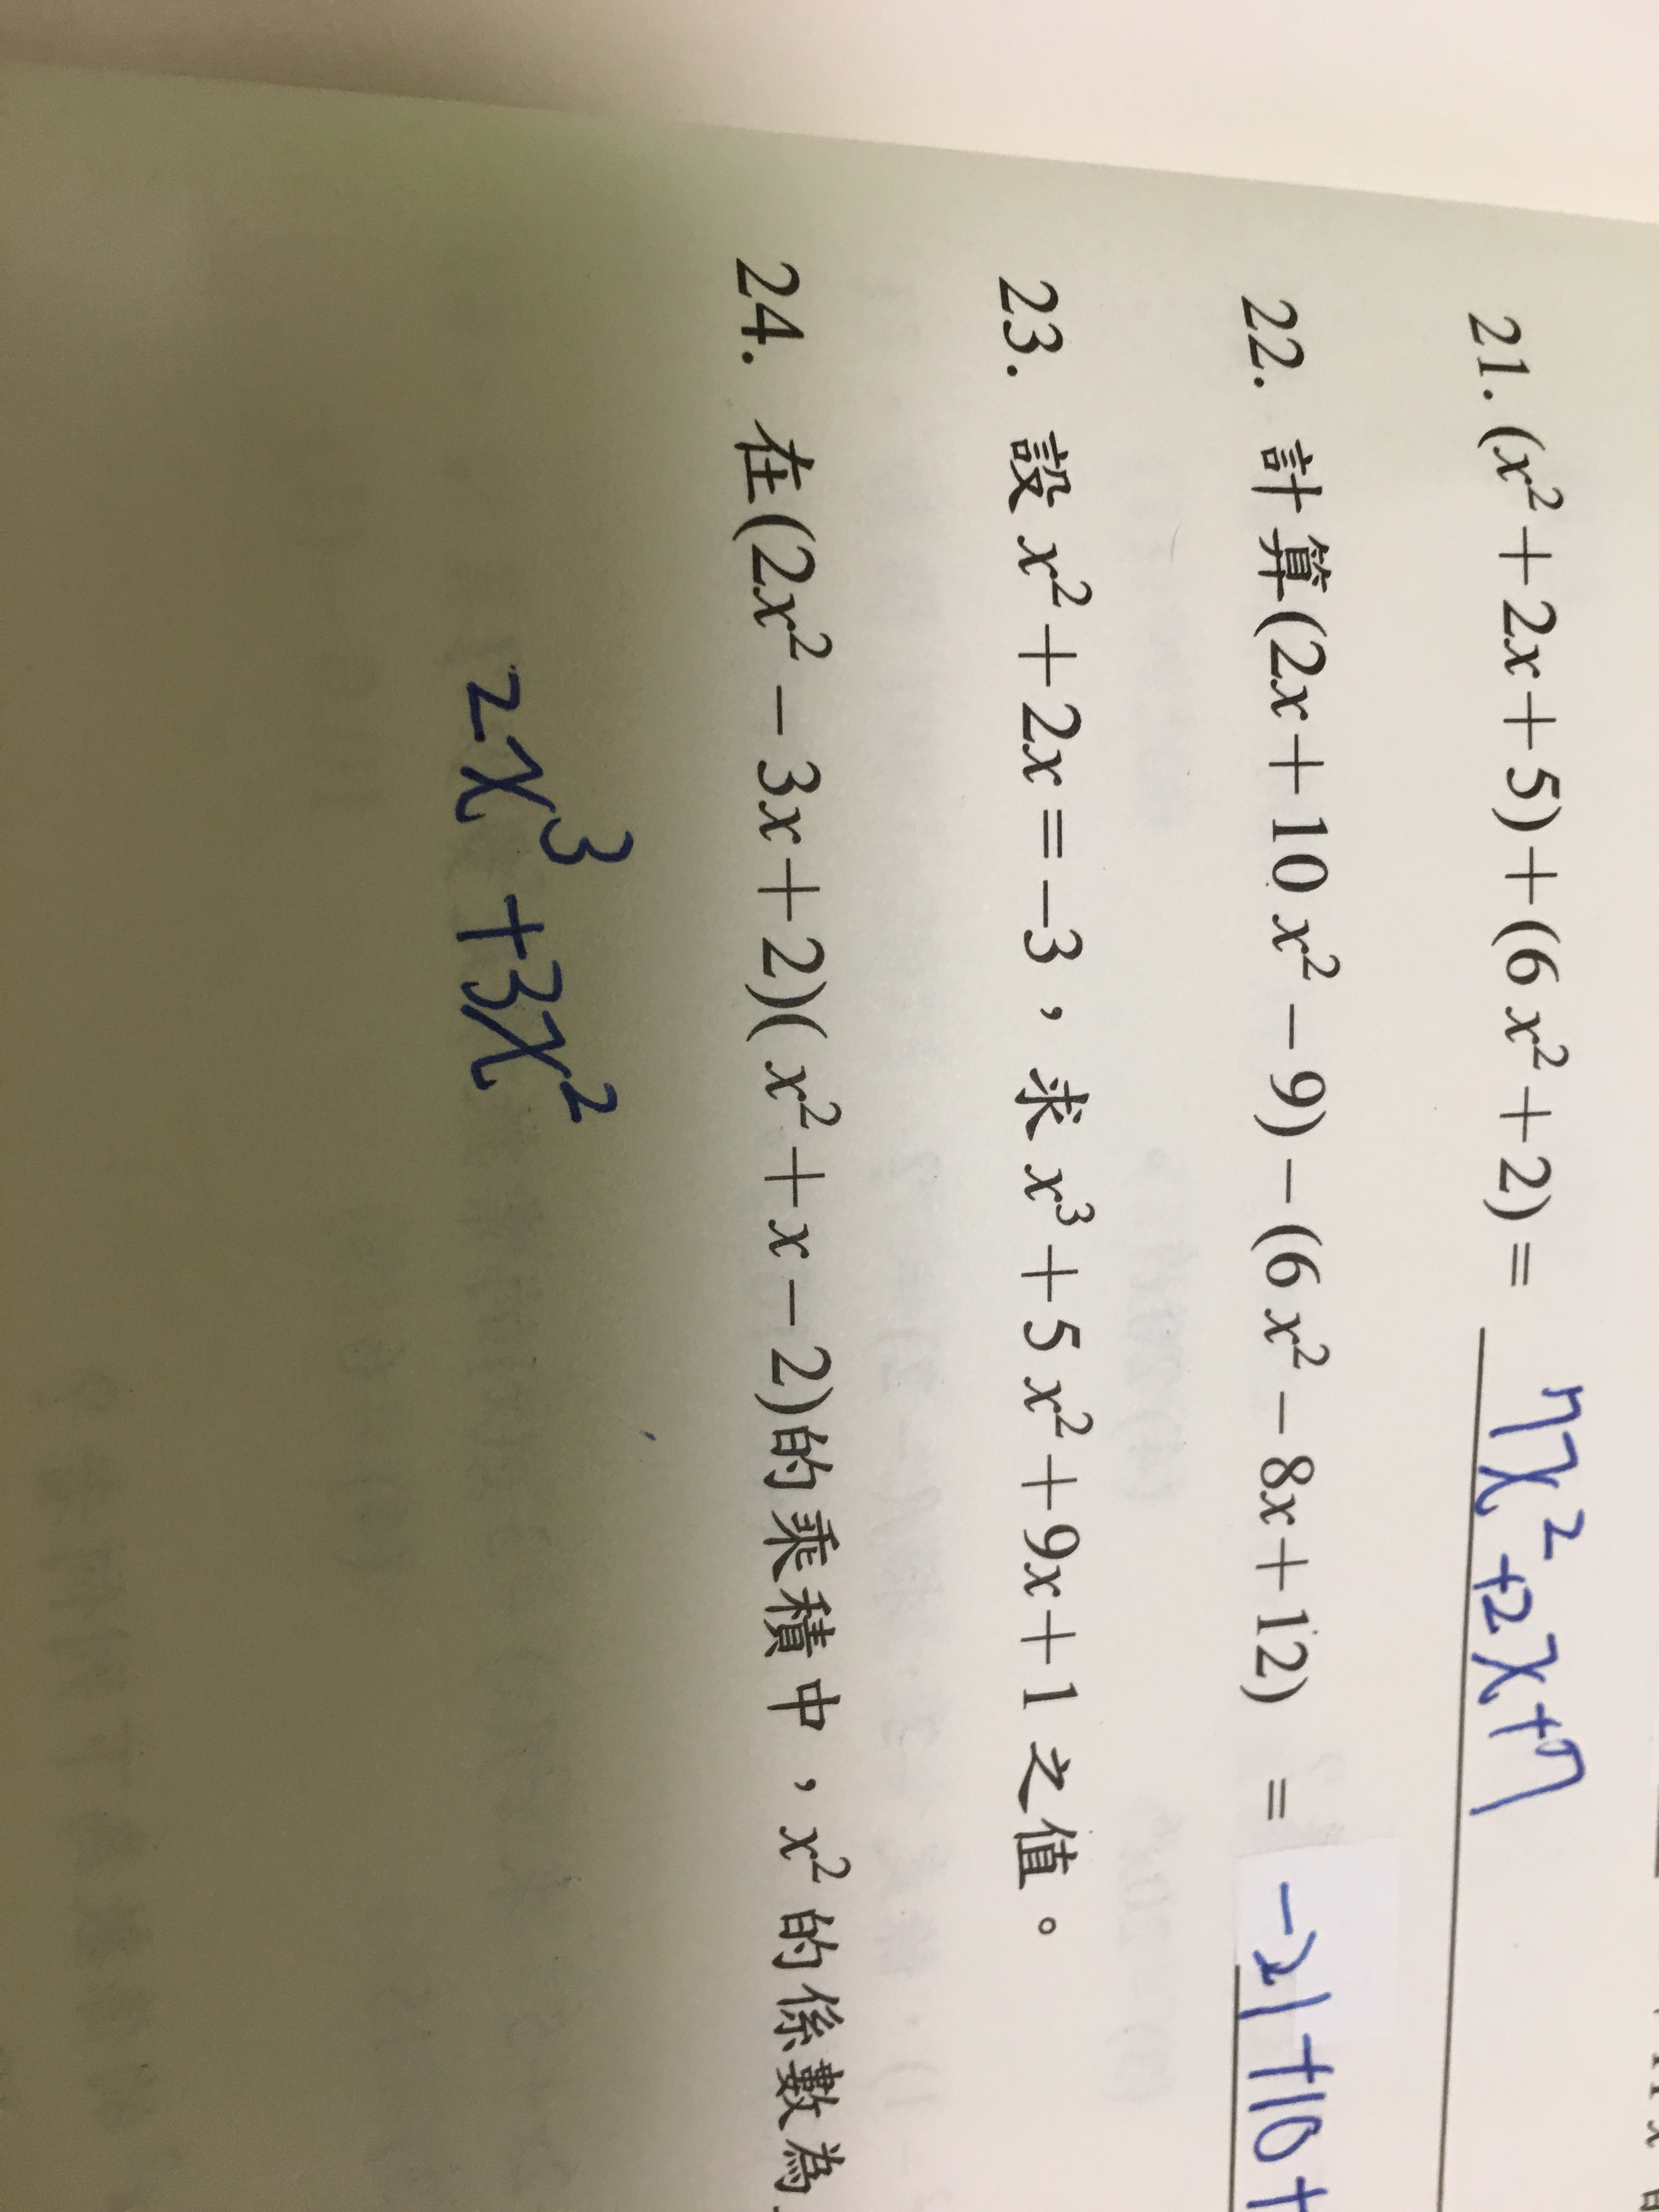 21. (x²+2x+5)+(6x²+2)= 7x²+2x+7
22. 計算(2x+10x²-9)-(6x²-8x+12) = -21+10+
23. 設x²+2x=-3，求x³+5x²+9x+1之值。
24. 在(2x²-3x+2)(x²+x-2)的乘積中，x²的係數為
2x³+3x²